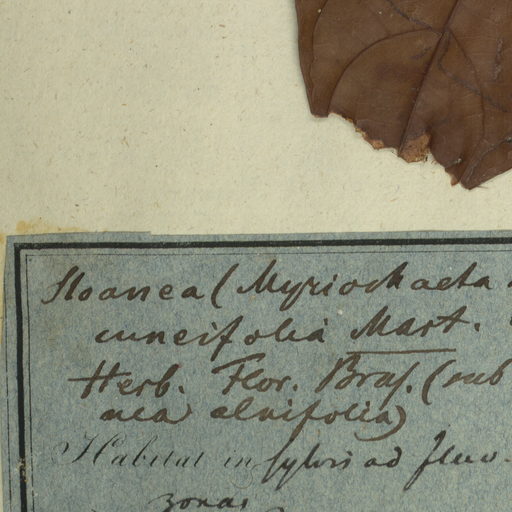 Sloanea (Myriochaeta
cuneifolia Mart.
Herb. Flor. Bras. (sub
nea alnifolia)
Habitat in sylvis ad fluv.
zonas